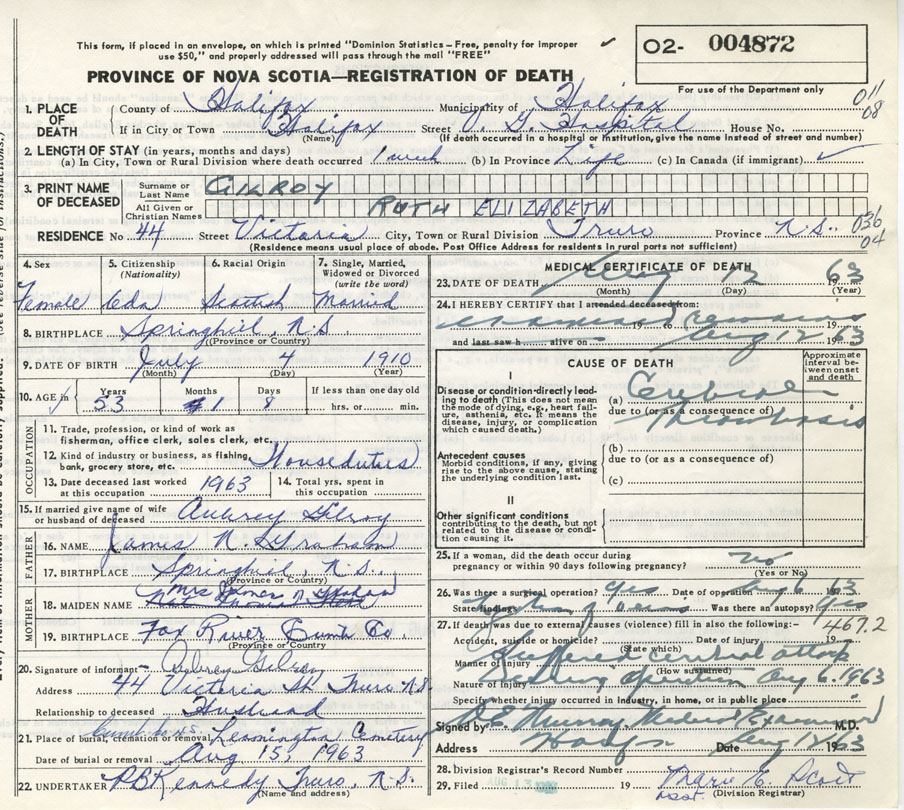 This form, if placed in an envelope, on which is printed "Dominion Statistics – Free, penalty for improper
use $50," and properly addressed will pass through the mail "FREE"
O2- 004872
For use of the Department only
PROVINCE OF NOVA SCOTIA—REGISTRATION OF DEATH
011
08
1. PLACE OF DEATH
County of Halifax Municipality of Halifax
If in City or Town Halifax Street V. G. Hospital House No.
(Name) (If death occurred in a hospital or institution, give the name instead of street and number)
2. LENGTH OF STAY (in years, months and days)
(a) In City, Town or Rural Division where death occurred 1 week (b) In Province Life (c) In Canada (if immigrant)
3. PRINT NAME OF DECEASED
Surname or Last Name GILROY
All Given or Christian Names RUTH ELIZABETH
RESIDENCE No. 44 Street Victoria City, Town or Rural Division Truro Province N.S.
036
04
(Residence means usual place of abode. Post Office Address for residents in rural parts not sufficient)
4. Sex Female
5. Citizenship (Nationality) Cda
6. Racial Origin Scottish
7. Single, Married, Widowed or Divorced (write the word) Married
8. BIRTHPLACE Springhill, N.S.
(Province or Country)
9. DATE OF BIRTH July 4 1910
(Month) (Day) (Year)
10. AGE in Years 53 Months 1 Days 8 If less than one day old hrs. or min.
OCCUPATION
11. Trade, profession, or kind of work as fisherman, office clerk, sales clerk, etc.
12. Kind of industry or business, as fishing, bank, grocery store, etc. Houseduties
13. Date deceased last worked at this occupation 1963
14. Total yrs. spent in this occupation
15. If married give name of wife or husband of deceased Aubrey Gilroy
FATHER
16. NAME James N. Graham
17. BIRTHPLACE Springhill, N.S.
(Province or Country)
MOTHER
18. MAIDEN NAME Mrs James N Graham
19. BIRTHPLACE Fox River Cumb Co.
(Province or Country)
20. Signature of informant Aubrey Gilroy
Address 44 Victoria St. Truro N.S.
Relationship to deceased Husband
21. Place of burial, cremation or removal Leamington Cemetery
Cumb Co N.S.
Date of burial or removal Aug 15, 1963
22. UNDERTAKER P.B Kennedy Truro, N.S.
(Name and address)
MEDICAL CERTIFICATE OF DEATH
23. DATE OF DEATH Aug 12 1963
(Month) (Day) (Year)
24. I HEREBY CERTIFY that I attended deceased from:
examined remains 19 to 19
and last saw h alive on Aug 12 1963
CAUSE OF DEATH
Approximate interval between onset and death
I
Disease or condition directly leading to death (This does not mean the mode of dying, e.g., heart failure, asthenia, etc. It means the disease, injury, or complication which caused death.)
(a) Cerebral
due to (or as a consequence of) Thrombosis
Antecedent causes
Morbid conditions, if any, giving rise to the above cause, stating the underlying condition last.
(b)
due to (or as a consequence of)
(c)
II
Other significant conditions
contributing to the death, but not related to the disease or condition causing it.
25. If a woman, did the death occur during pregnancy or within 90 days following pregnancy? no
(Yes or No)
26. Was there a surgical operation? yes Date of operation Aug 6 1963
State findings Was there an autopsy? yes
27. If death was due to external causes (violence) fill in also the following:–
467.2
Accident, suicide or homicide? Date of injury 19
(State which)
Manner of injury
(How sustained)
Nature of injury operation Aug 6. 1963
Specify whether injury occurred in industry, in home, or in public place
Signed by Murray Medical Examiner M.D.
Address Date Aug 12 1963
28. Division Registrar's Record Number
29. Filed Marie C. Scott
Asst. (Division Registrar)